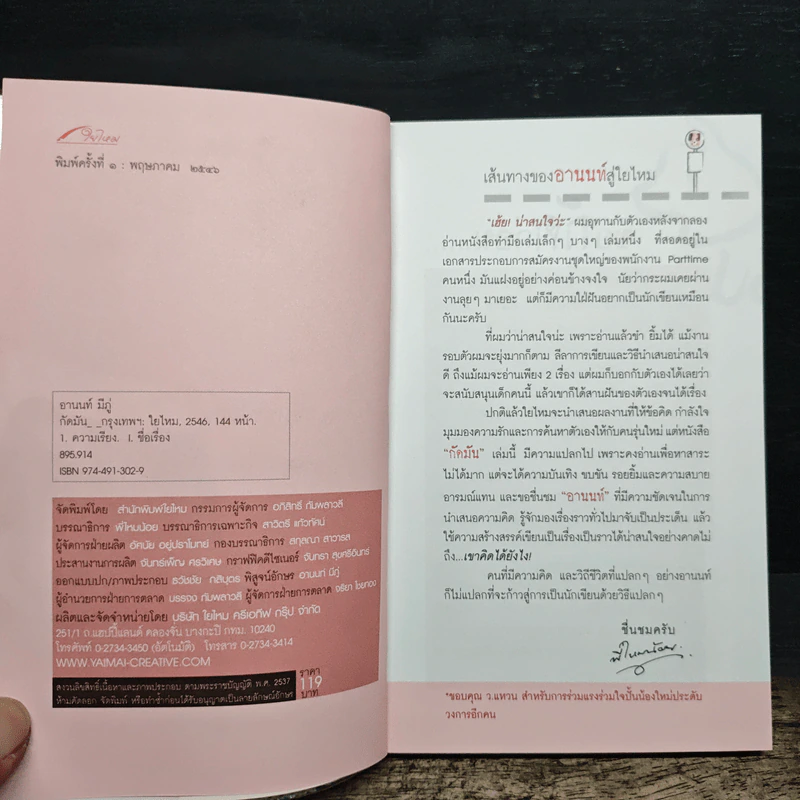 ใยไหม
พิมพ์ครั้งที่ ๑ : พฤษภาคม ๒๕๔๖
อานนท์ มีภู่
กัดมัน_ _กรุงเทพฯ: ใยไหม, 2546, 144 หน้า.
1. ความเรียง. I. ชื่อเรื่อง
895.914
ISBN 974-491-302-9
จัดพิมพ์โดย สำนักพิมพ์ใยไหม กรรมการผู้จัดการ อภิสิทธิ์ ทัมพลาวลี
บรรณาธิการ พี่ไหมน้อย บรรณาธิการเฉพาะกิจ สาวิตรี แก้วทัศน์
ผู้จัดการฝ่ายผลิต อัศนัย อยู่ปราโมทย์ กองบรรณาธิการ สกุลณา สาวารส
ประสานงานการผลิต จันทร์เพ็ญ ศรวิเศษ กราฟฟิคดีไซเนอร์ จันทรา สุขศรีอินทร์
ออกแบบปก/ภาพประกอบ ธวัชชัย กสิบุตร พิสูจน์อักษร อานนท์ มีภู่
ผู้อำนวยการฝ่ายการตลาด บรรจง ทัมพลาวลี ผู้จัดการฝ่ายการตลาด จริยา ไชยทอง
ผลิตและจัดจำหน่ายโดย บริษัท ใยไหม ครีเอทีฟ กรุ๊ป จำกัด
251/1 ถ.แฮปปี้แลนด์ คลองจั่น บางกะปิ กทม. 10240
โทรศัพท์ 0-2734-3450 (อัตโนมัติ) โทรสาร 0-2734-3414
WWW.YAIMAI-CREATIVE.COM
ราคา
119
บาท
สงวนลิขสิทธิ์เนื้อหาและภาพประกอบ ตามพระราชบัญญัติ พ.ศ. 2537
ห้ามคัดลอก จัดพิมพ์ หรือทำซ้ำก่อนได้รับอนุญาตเป็นลายลักษณ์อักษร
เส้นทางของอานนท์สู่ใยไหม
"เฮ้ย! น่าสนใจว่ะ" ผมอุทานกับตัวเองหลังจากลอง
อ่านหนังสือทำมือเล่มเล็กๆ บางๆ เล่มหนึ่ง ที่สอดอยู่ใน
เอกสารประกอบการสมัครงานชุดใหญ่ของพนักงาน Parttime
คนหนึ่ง มันแฝงอยู่อย่างค่อนข้างจงใจ นัยว่ากระผมเคยผ่าน
งานลุยๆ มาเยอะ แต่ก็มีความใฝ่ฝันอยากเป็นนักเขียนเหมือน
กันนะครับ
ที่ผมว่าน่าสนใจน่ะ เพราะอ่านแล้วขำ ยิ้มได้ แม้งาน
รอบตัวผมจะยุ่งมากก็ตาม ลีลาการเขียนและวิธีนำเสนอน่าสนใจ
ดี ถึงแม้ผมจะอ่านเพียง 2 เรื่อง แต่ผมก็บอกกับตัวเองได้เลยว่า
จะสนับสนุนเด็กคนนี้ แล้วเขาก็ได้สานฝันของตัวเองจนได้เรื่อง
ปกติแล้วใยไหมจะนำเสนอผลงานที่ให้ข้อคิด กำลังใจ
มุมมองของความรักและการค้นหาตัวเองให้กับคนรุ่นใหม่ แต่หนังสือ
"กัดมัน" เล่มนี้ มีความแปลกไป เพราะคงอ่านเพื่อหาสาระ
ไม่ได้มาก แต่จะได้ความบันเทิง ขบขัน รอยยิ้มและความสบาย
อารมณ์แทน และขอชื่นชม "อานนท์" ที่มีความชัดเจนในการ
นำเสนอความคิด รู้จักมองเรื่องราวทั่วไปมาจับเป็นประเด็น แล้ว
ใช้ความสร้างสรรค์เขียนเป็นเรื่องเป็นราวได้น่าสนใจอย่างคาดไม่
ถึง...เขาคิดได้ยังไง!
คนที่มีความคิด และวิถีชีวิตที่แปลกๆ อย่างอานนท์
ก็ไม่แปลกที่จะก้าวสู่การเป็นนักเขียนด้วยวิธีแปลกๆ
ชื่นชมครับ
พี่ไหมน้อย.
*ขอบคุณ ว.แหวน สำหรับการร่วมแรงร่วมใจปั้นน้องใหม่ประดับ
วงการอีกคน